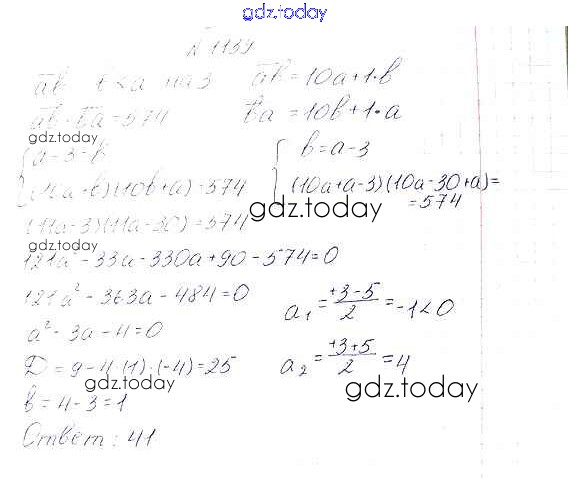 gdz.today
№ 1139
ab b<a на 3 ab = 10a+1·b
ab · ba = 574 ba = 10b+1·a
gdz.today
a-3=b b=a-3
(10a+b)(10b+a)=574 (10a+a-3)(10a-30+a)=
=574
gdz.today
(11a-3)(11a-30)=574
gdz.today
121a² - 33a - 330a + 90 - 574 = 0
121a² - 363a - 484 = 0 a₁ = +3-5/2 = -1 < 0
a² - 3a - 4 = 0
D = 9 - 4·(1)·(-4) = 25 a₂ = +3+5/2 = 4
gdz.today gdz.today
b = 4 - 3 = 1
Ответ: 41